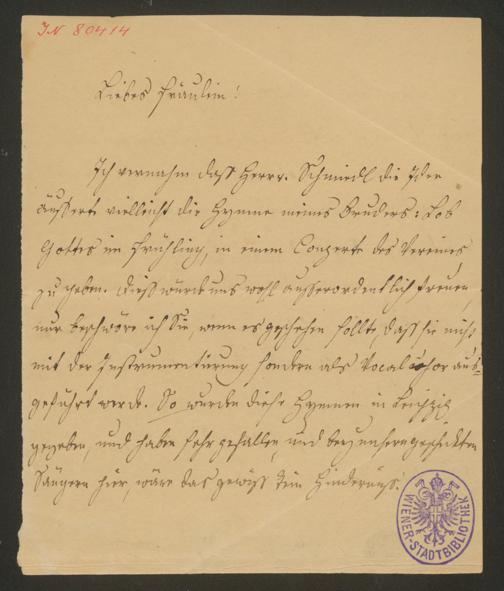 IN 80414
Liebes Fräulein!
Ich vernahm daß Herr v. Schmiedl die Idee
äußerte vielleicht die Hymne meines Bruders: Lob
Gottes im Frühling, in einem Conzerte des Vereines
zu geben. Dieß würde uns wohl außerordentlich freuen,
nur beschwöre ich Sie, wenn es geschehen sollte, daß sie nicht
mit der Instrumentirung sondern als Vocalchor aus-
geführt werde. So wurden diese Hymnen in Leipzig
gegeben, und haben sehr gefallen, und bey unseren geschickten
Sängern hier, wäre das gewiß kein Hinderniß.
WIENER-STADTBIBLIOTHEK